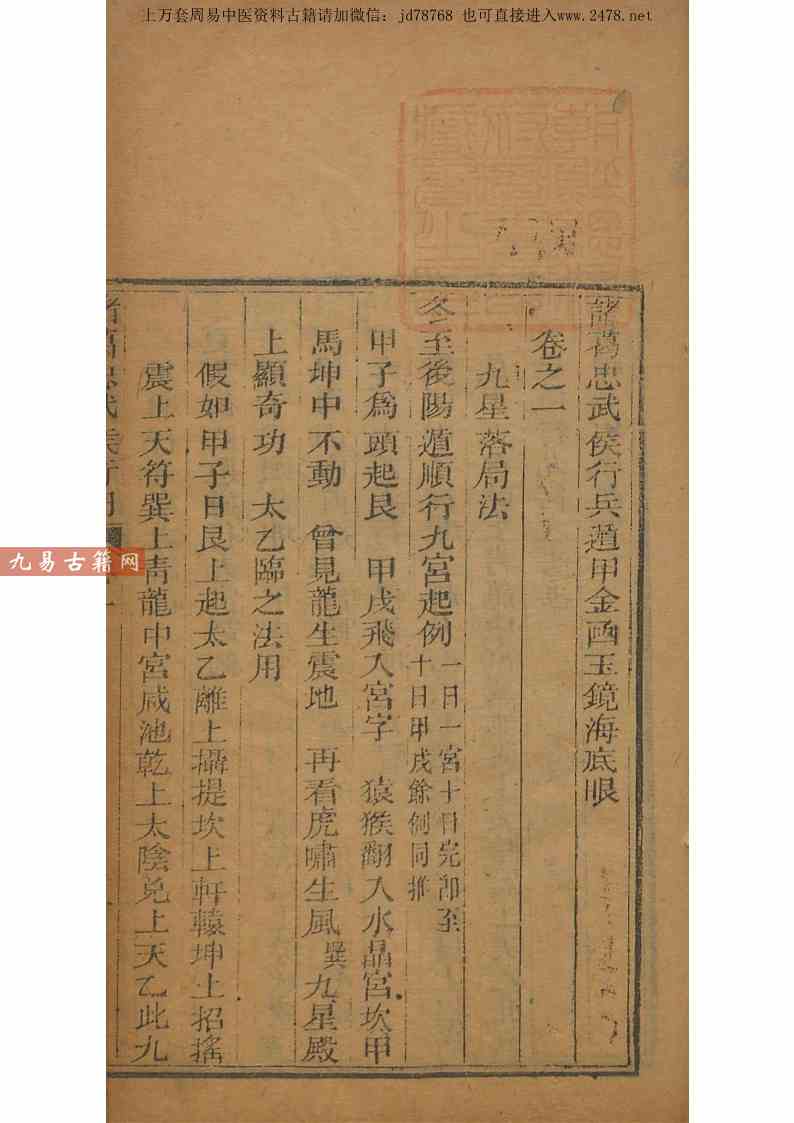 上万套周易中医资料古籍请加微信：jd78768 也可直接进入www.2478.net
諸葛忠武侯行兵遁甲金函玉鏡海底眼
卷之一
九星落局法
冬至後陽遁順行九宮起例 一日一宮十日完卽至
十日甲戌餘例同推
甲子爲頭起艮 甲戌飛入宮字 猿猴翻入水晶宮坎甲
馬坤中不動 曾見龍生震地 再看虎嘯生風巽九星殿
上顯奇功 太乙臨之法用
假如甲子日艮上起太乙離上攝提坎上軒轅坤上招搖
震上天符巽上靑龍中宮咸池乾上太陰兌上天乙此九
九易古籍网